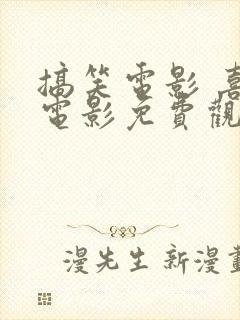 搞笑電影 喜
電影免費觀
漫先生新漫畫